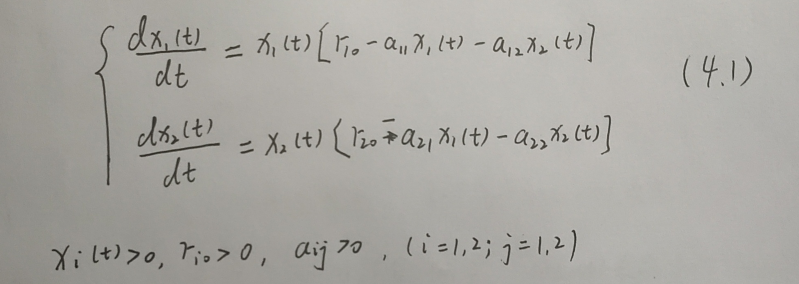 dx₁(t)/dt = x₁(t)[r₁₀ - a₁₁x₁(t) - a₁₂x₂(t)] (4.1)
dx₂(t)/dt = x₂(t)[r₂₀ - a₂₁x₁(t) - a₂₂x₂(t)]
xᵢ(t)>0, rᵢ₀>0, aᵢⱼ>0, (i=1,2; j=1,2)